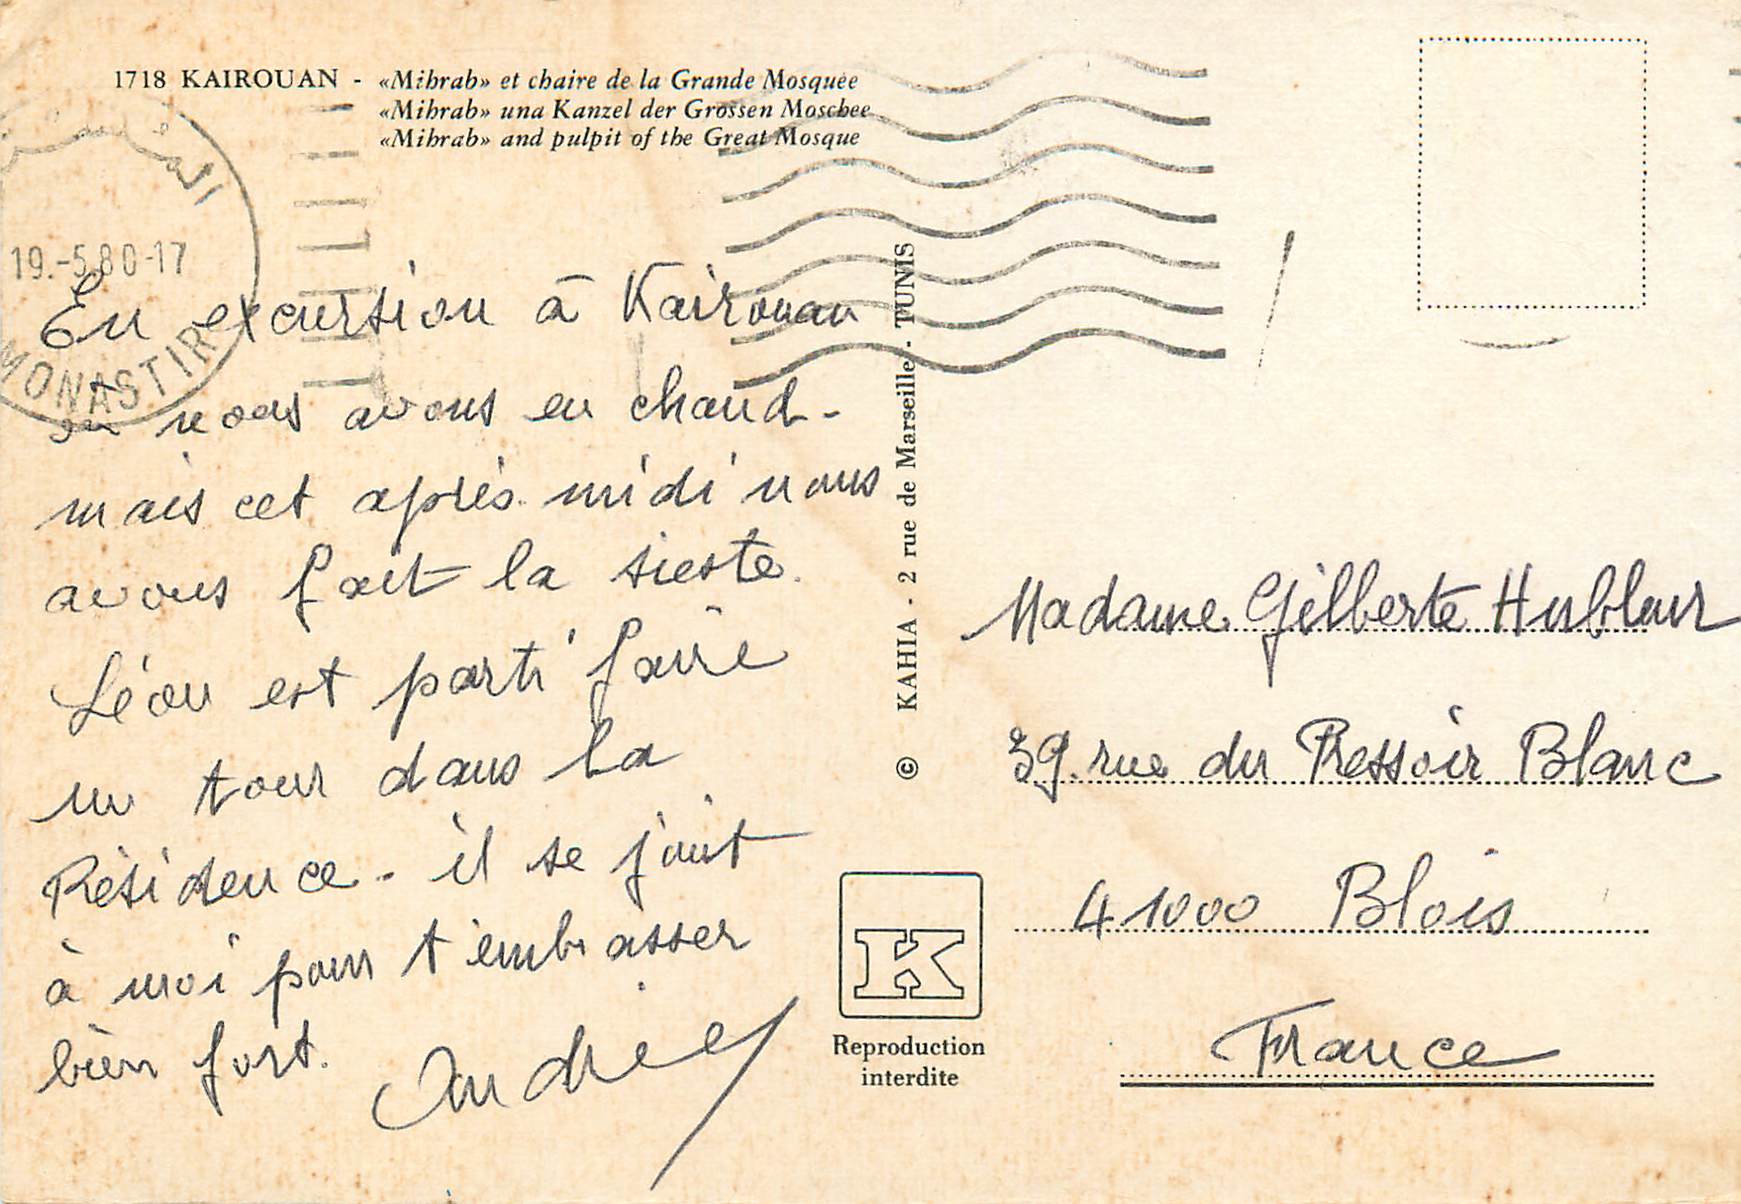 1718 KAIROUAN - «Mihrab» et chaire de la Grande Mosquée
«Mihrab» una Kanzel der Grossen Moschee
«Mihrab» and pulpit of the Great Mosque
19.-5.80-17
MONASTIR
En excursion à Kairouan
nous avons eu chaud -
mais cet après midi nous
avons fait la sieste.
Léon est parti faire
un tour dans la
Résidence - il se joint
à moi pour t'embrasser
bien fort.
Andrée
© KAHIA - 2 rue de Marseille - TUNIS
Reproduction
interdite
Madame Gilberte
39 rue du Pressoir Blanc
41000 Blois
France